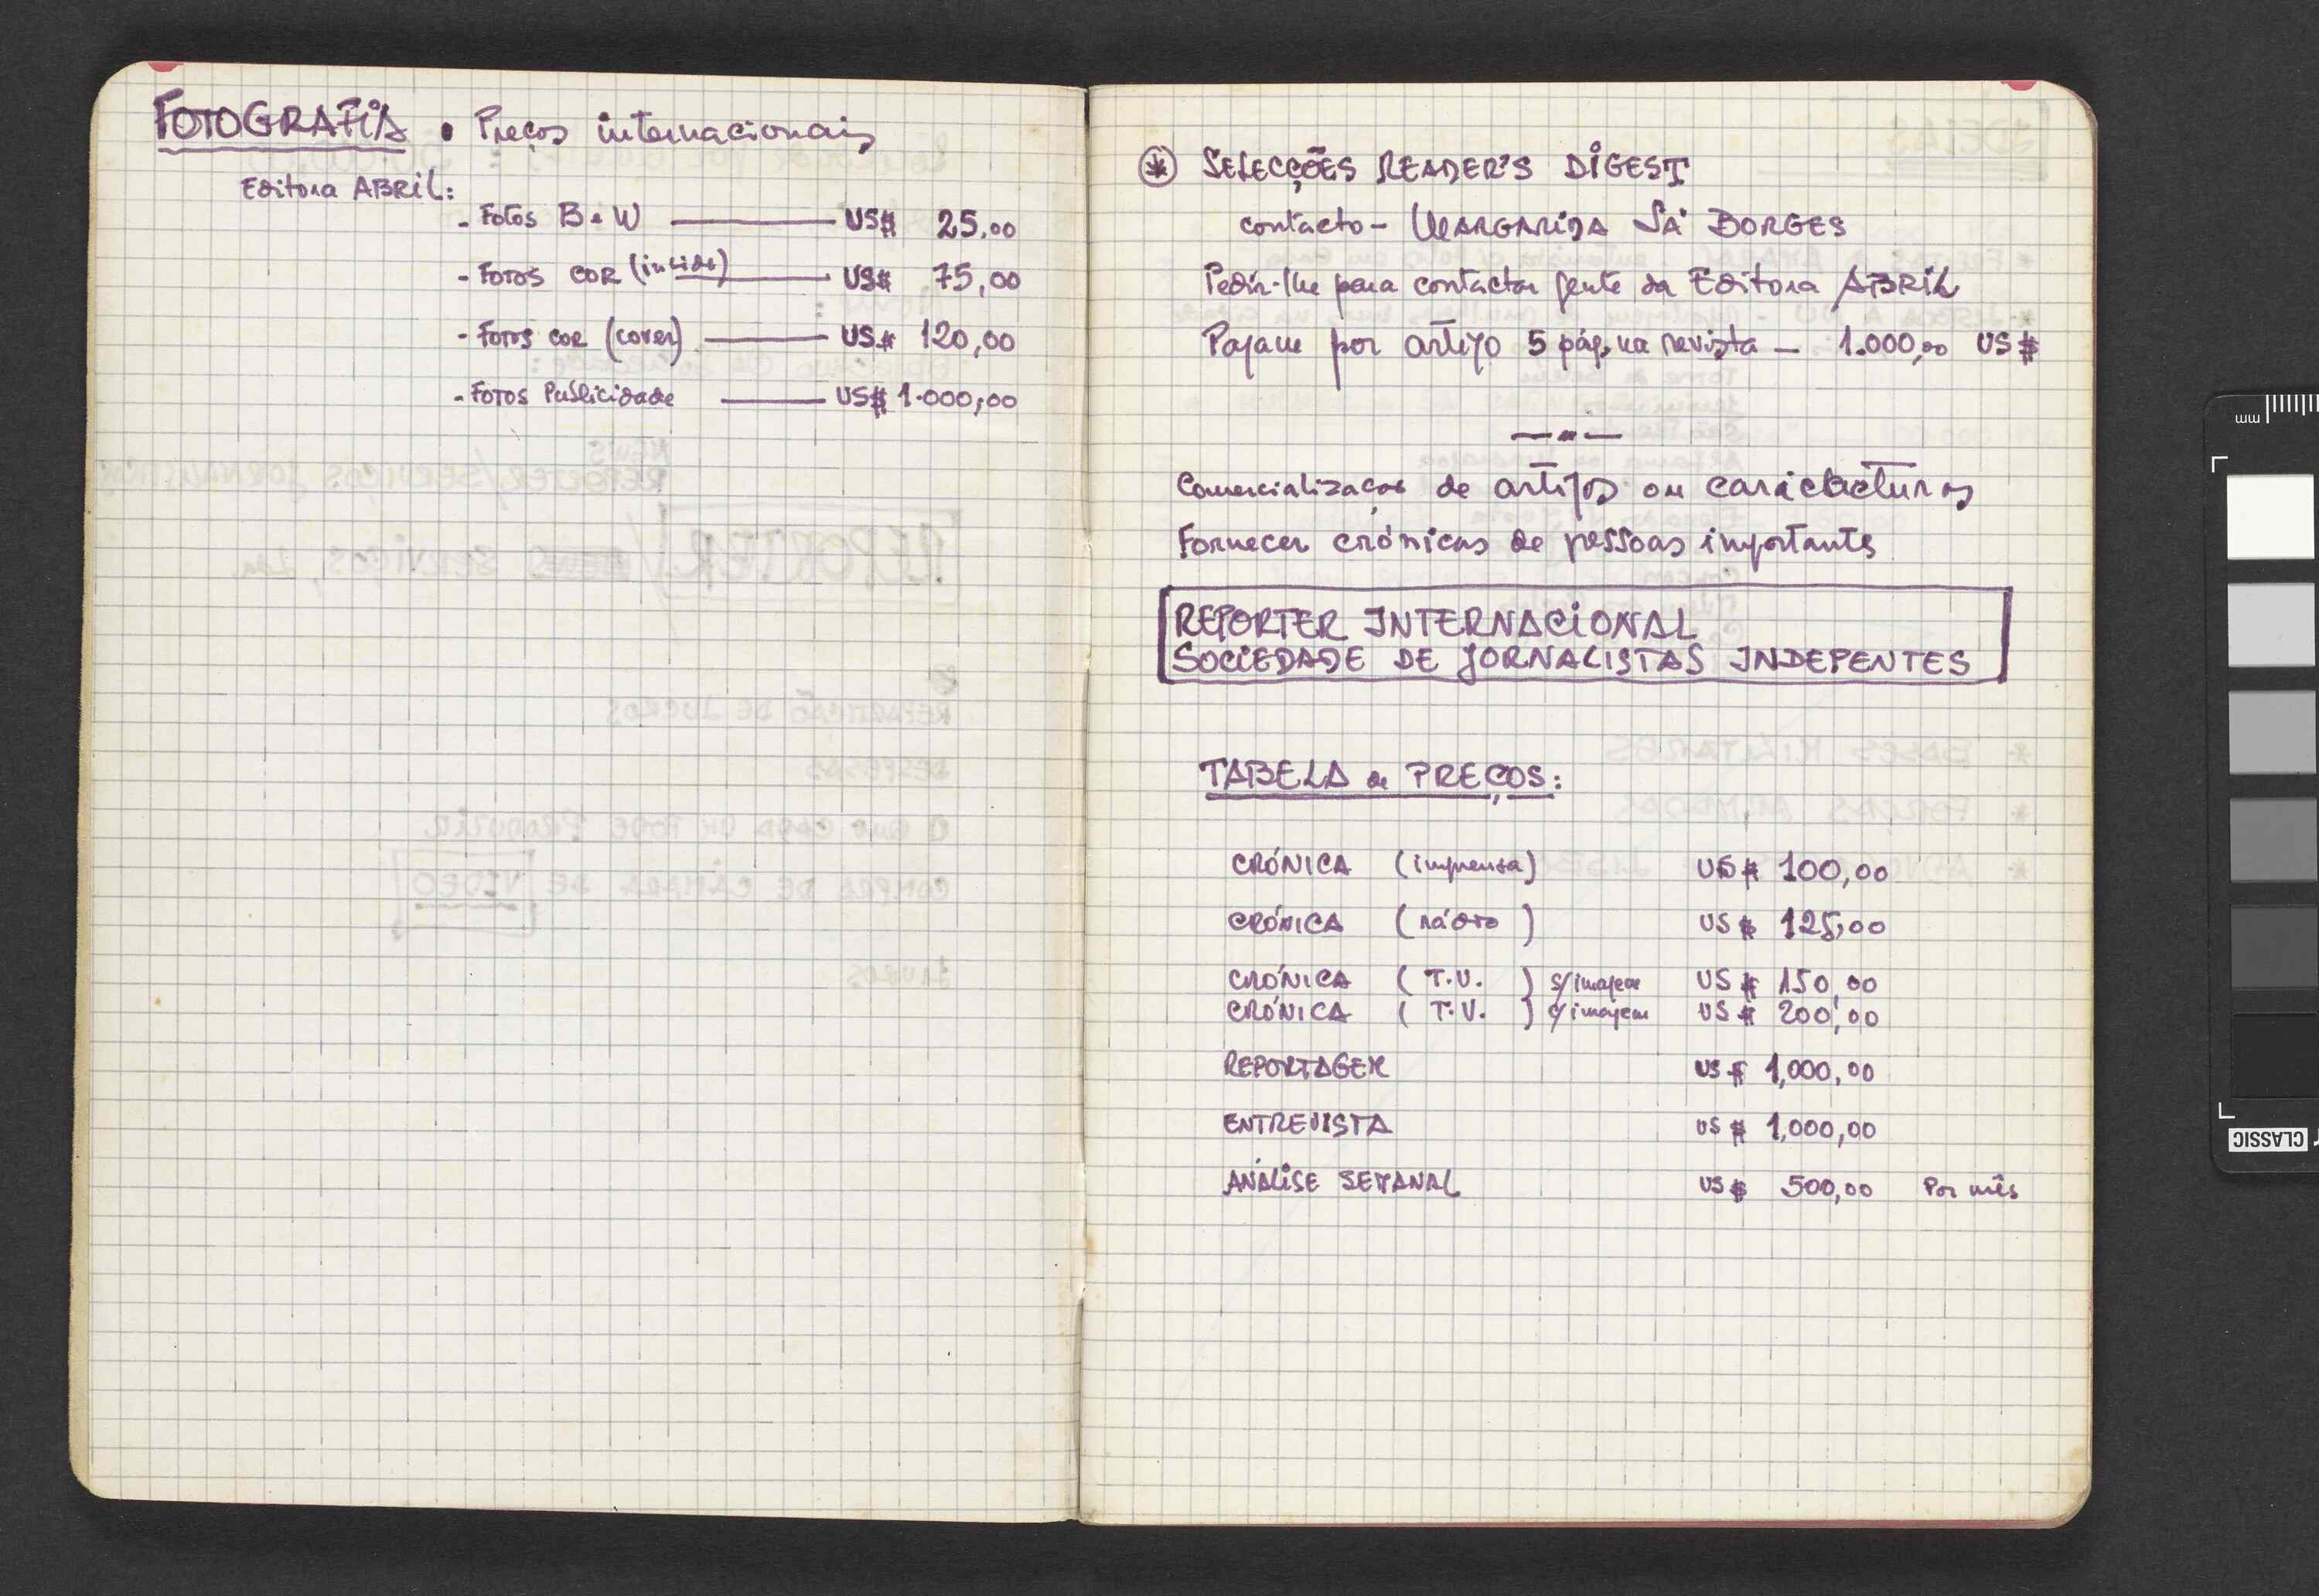 FOTOGRAFIA • Preços internacionais
Editora ABRIL:
- Fotos B e W ——— US$ 25.00
- Fotos COR (inside) ——— US$ 75,00
- Fotos cor (cover) ——— US$ 120,00
- Fotos Publicidade ——— US$ 1.000,00
* SELECÇÕES READER'S DIGEST
contacto - MARGARIDA SÁ BORGES
Pedir-lhe para contactar gente da Editora ABRIL
Pagam por artigo 5 pág. na revista - 1.000,00 US$
—"—
Comercialização de artigos ou caricacturas
Fornecer crónicas de pessoas importantes
REPORTER INTERNACIONAL
SOCIEDADE DE JORNALISTAS INDEPENTES
TABELA de PREÇOS:
CRÓNICA (imprensa) US$ 100,00
CRÓNICA (rádio) US$ 125,00
CRÓNICA (T.V.) s/imagem US$ 150,00
CRÓNICA (T.V.) c/imagem US$ 200,00
REPORTAGEM US$ 1,000,00
ENTREVISTA US$ 1,000,00
ANÁLISE SEMANAL US$ 500,00 Por mês
mm
CLASSIC